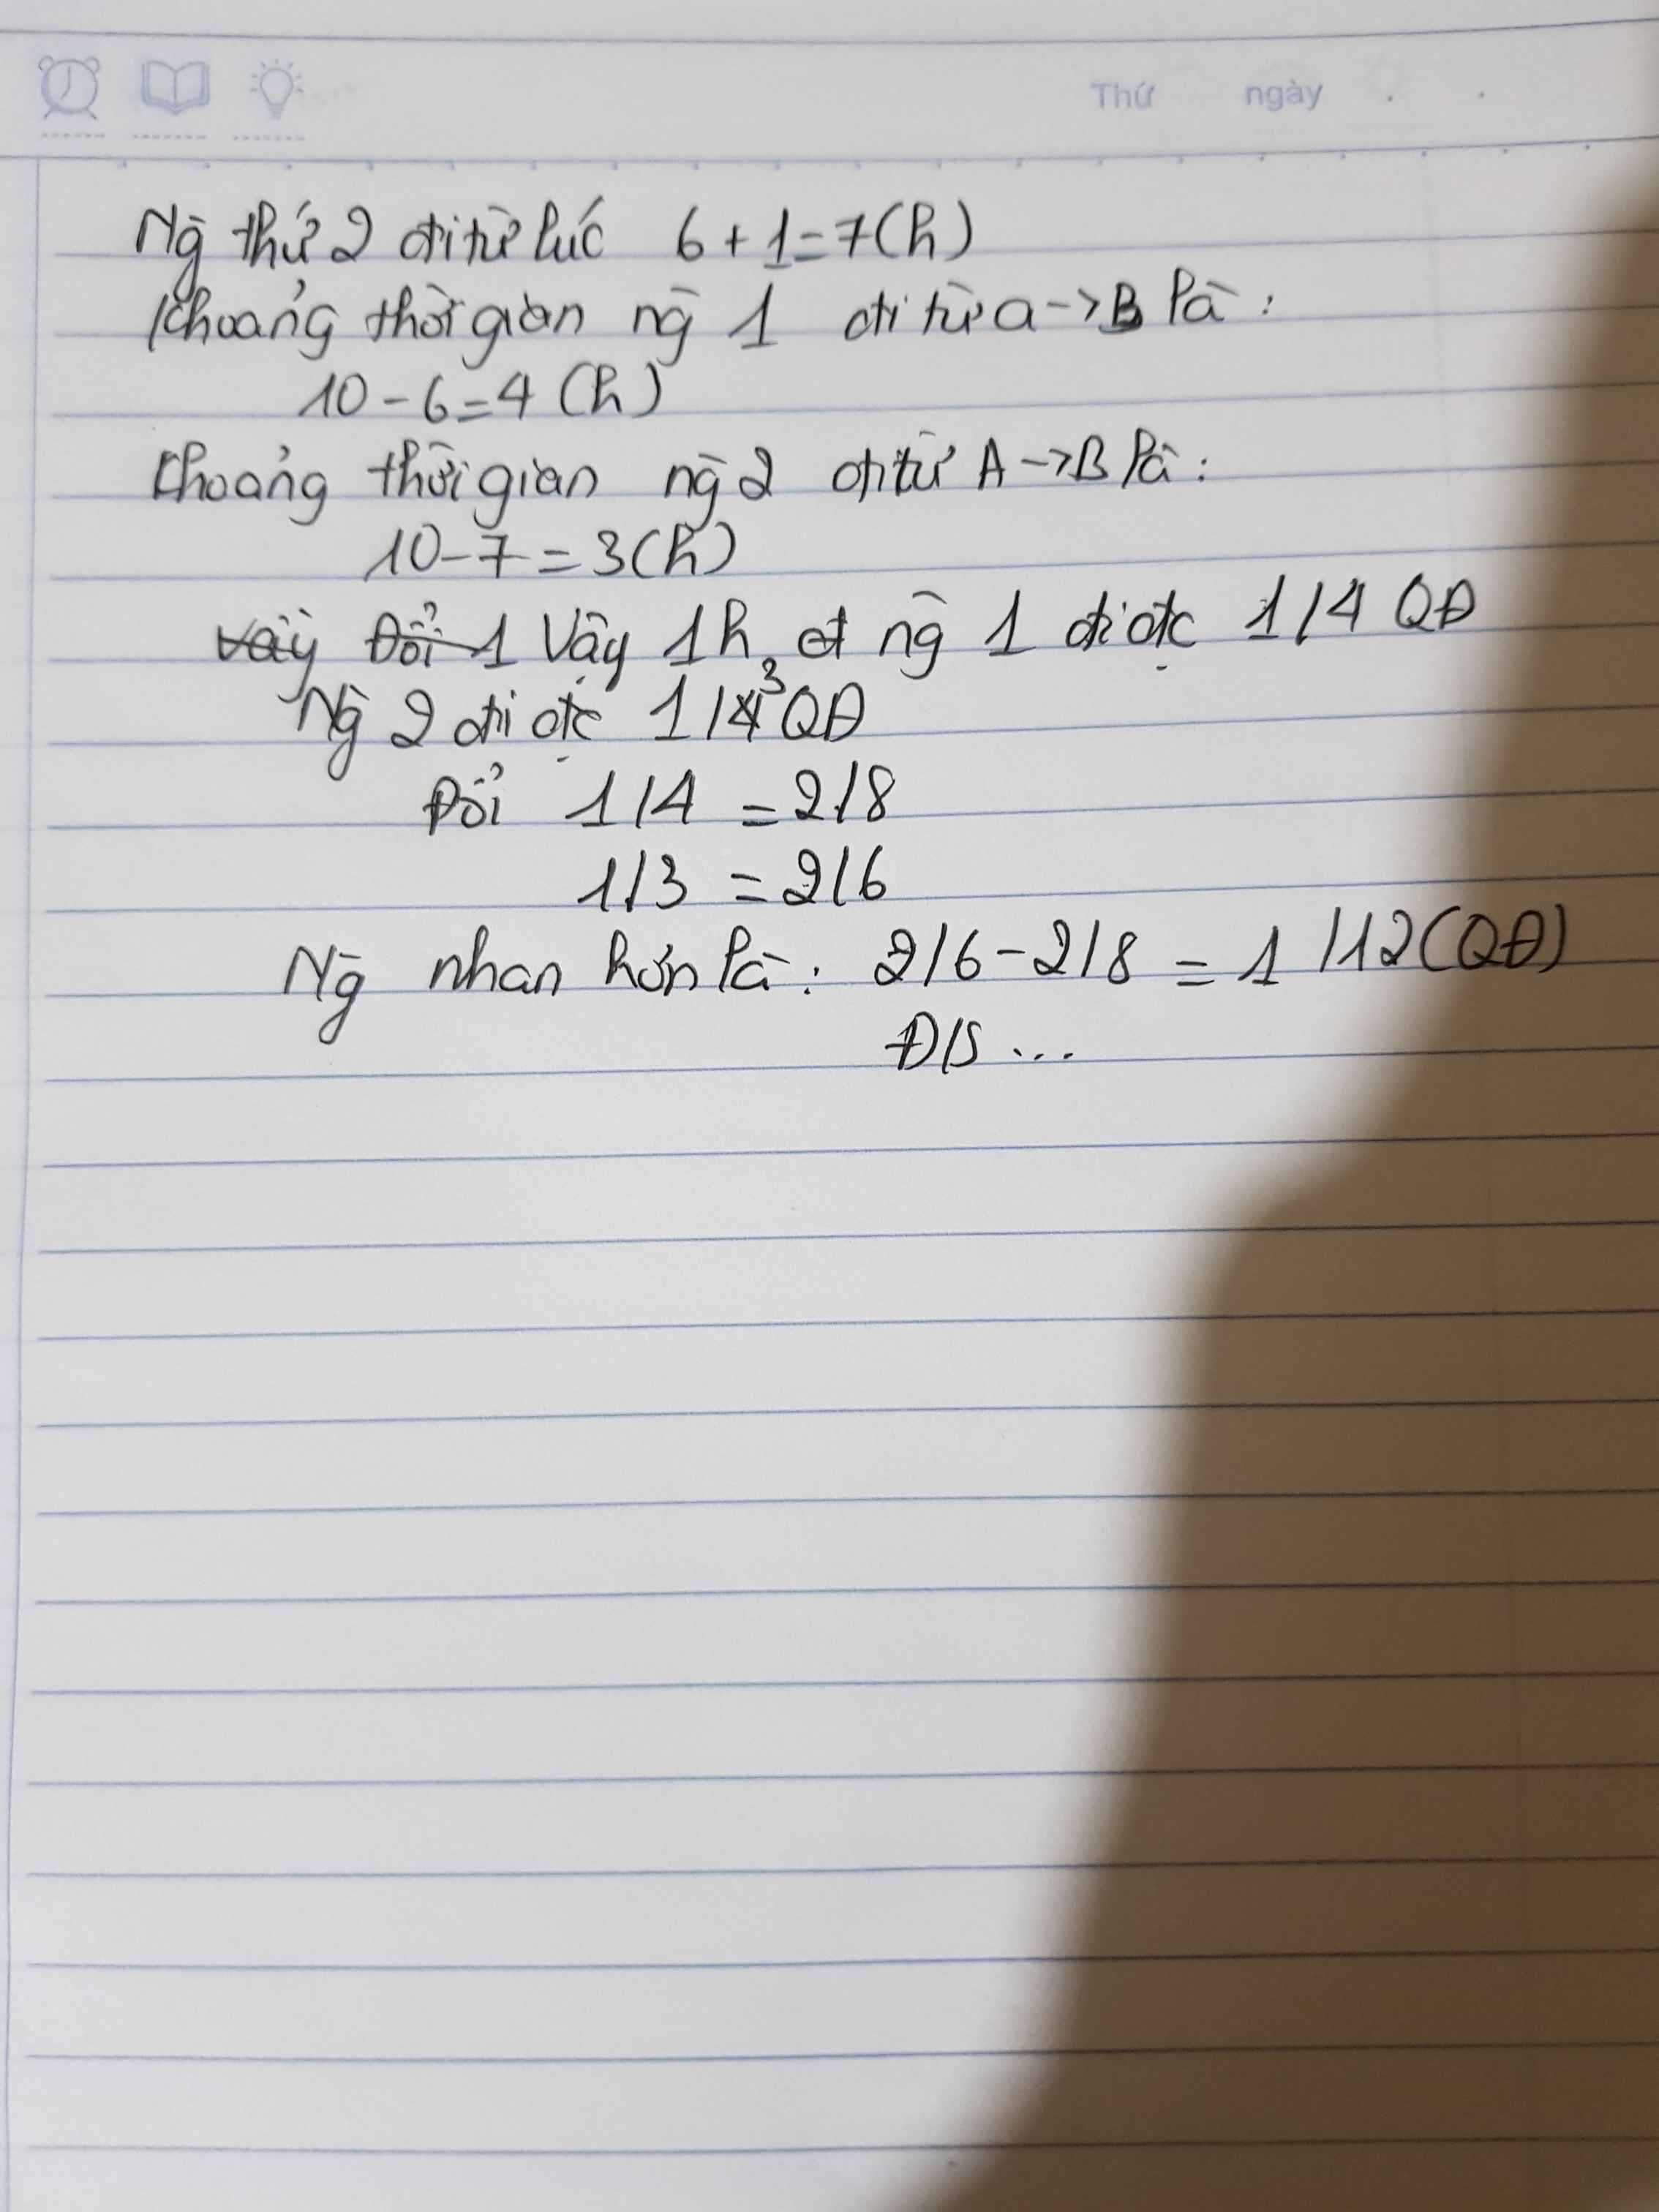 Thứ ngày
Ng̀ thứ 2 đi từ lúc 6 + 1 = 7 (h)
Khoảng thời gian ng̀ 1 đi từ a -> B là :
10 - 6 = 4 (h)
Khoảng thời gian ng̀ 2 đi từ A -> B là :
10 - 7 = 3 (h)
Vậy Đổi 1 Vậy 1h, ng̀ 1 đi đc 1/4 QĐ
Ng̀ 2 đi đc 1/3 QĐ
Đổi 1/4 = 2/8
1/3 = 2/6
Ng̀ nhan hơn là : 2/6 - 2/8 = 1/12 (QĐ)
Đ/S ...